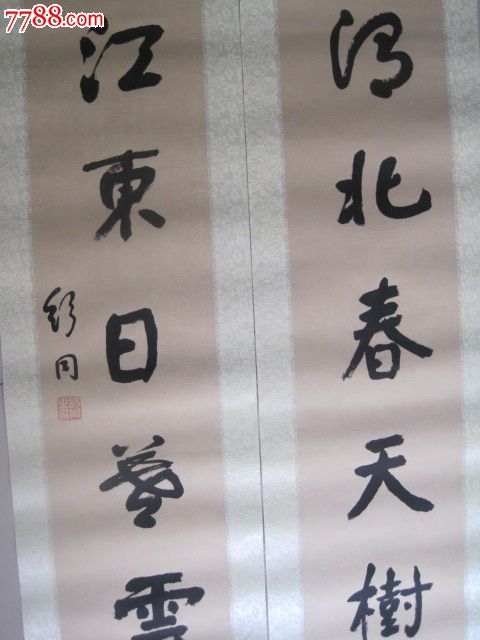 7788.com
渭北春天樹
江東日暮雲
舒同